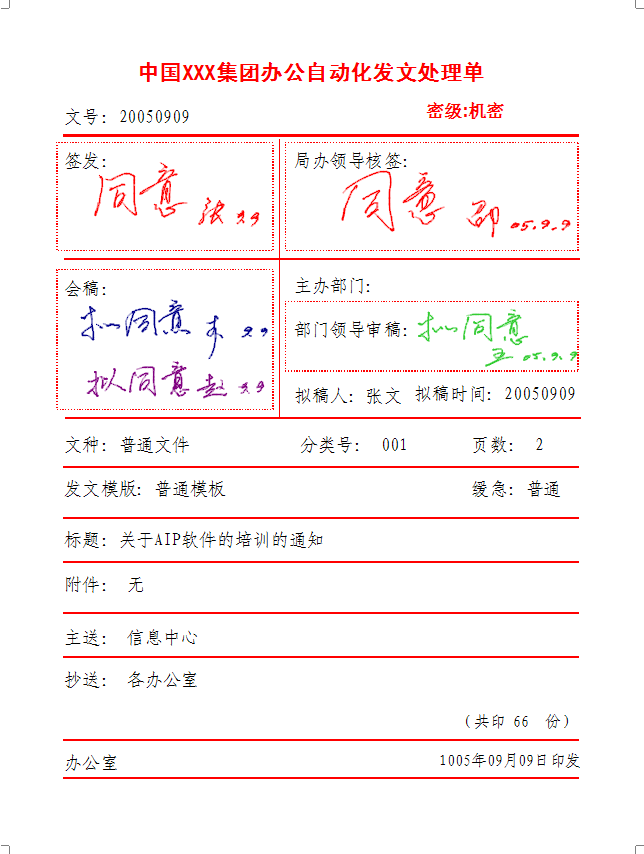 中国XXX集团办公自动化发文处理单
文号：20050909
密级:机密
签发：
同意 张 9.9
局办领导核签：
同意 邵 05.9.9
会稿：
拟同意 李 9.9
拟同意 赵 9.9
主办部门：
部门领导审稿：
拟同意
王 05.9.9
拟稿人：张文 拟稿时间：20050909
文种：普通文件 分类号： 001 页数： 2
发文模版：普通模板 缓急：普通
标题：关于AIP软件的培训的通知
附件： 无
主送： 信息中心
抄送： 各办公室
（共印 66 份）
办公室 1005年09月09日印发